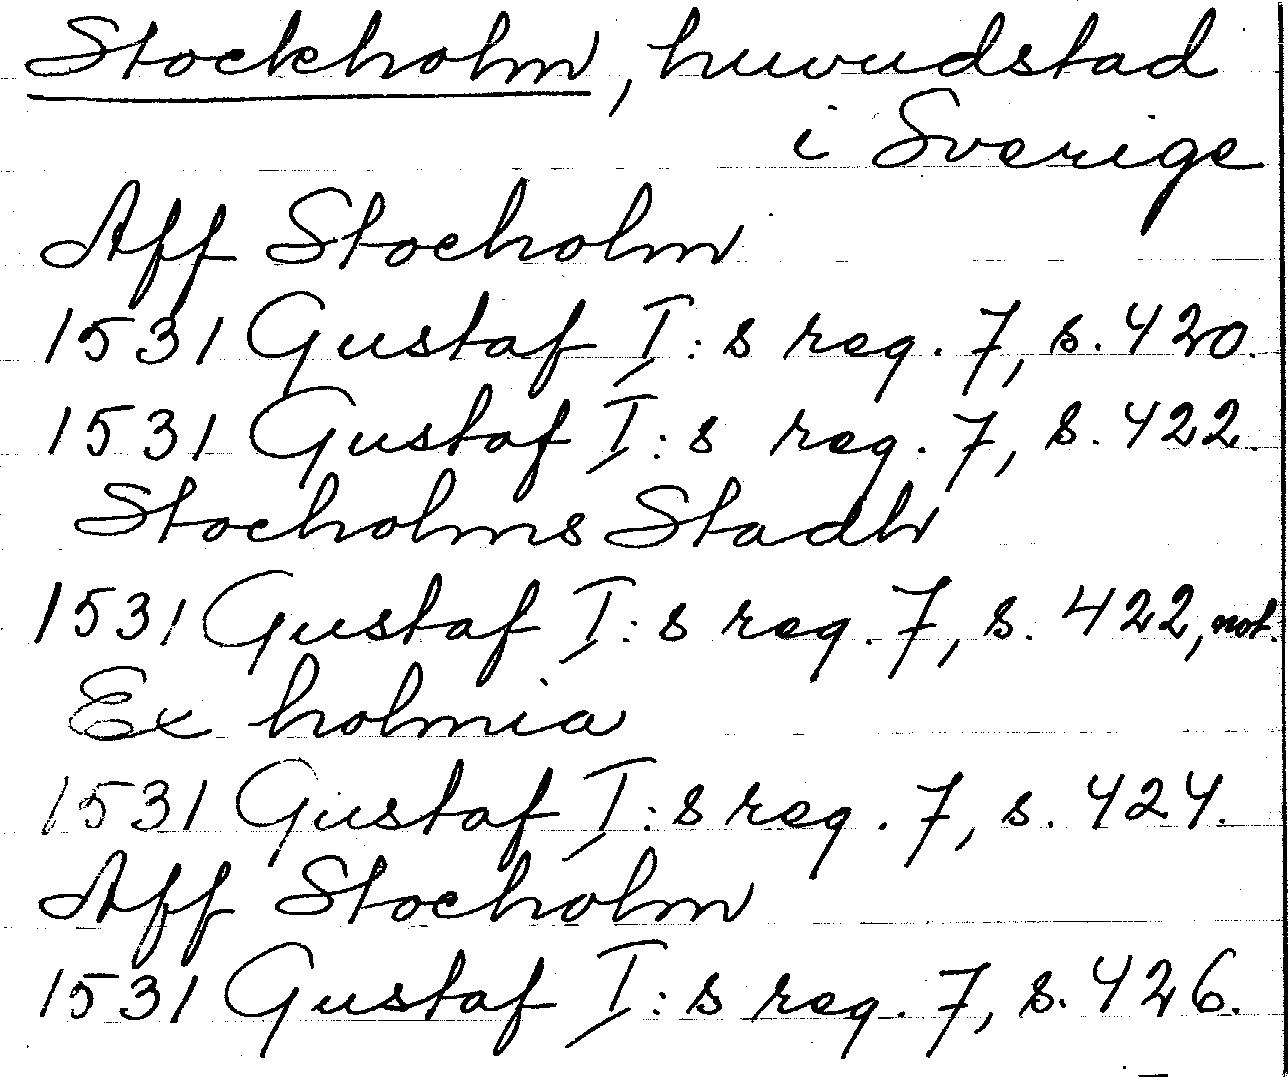 Stockholm, huvudstad
i Sverige
Aff Stocholm
1531 Gustaf I:s reg. 7, s. 420.
1531 Gustaf I:s reg. 7, s. 422.
Stocholms Stadh
1531 Gustaf I:s reg. 7, s. 422, not.
Ex holmia
1531 Gustaf I:s reg. 7, s. 424.
Aff Stocholm
1531 Gustaf I:s reg. 7, s. 426.